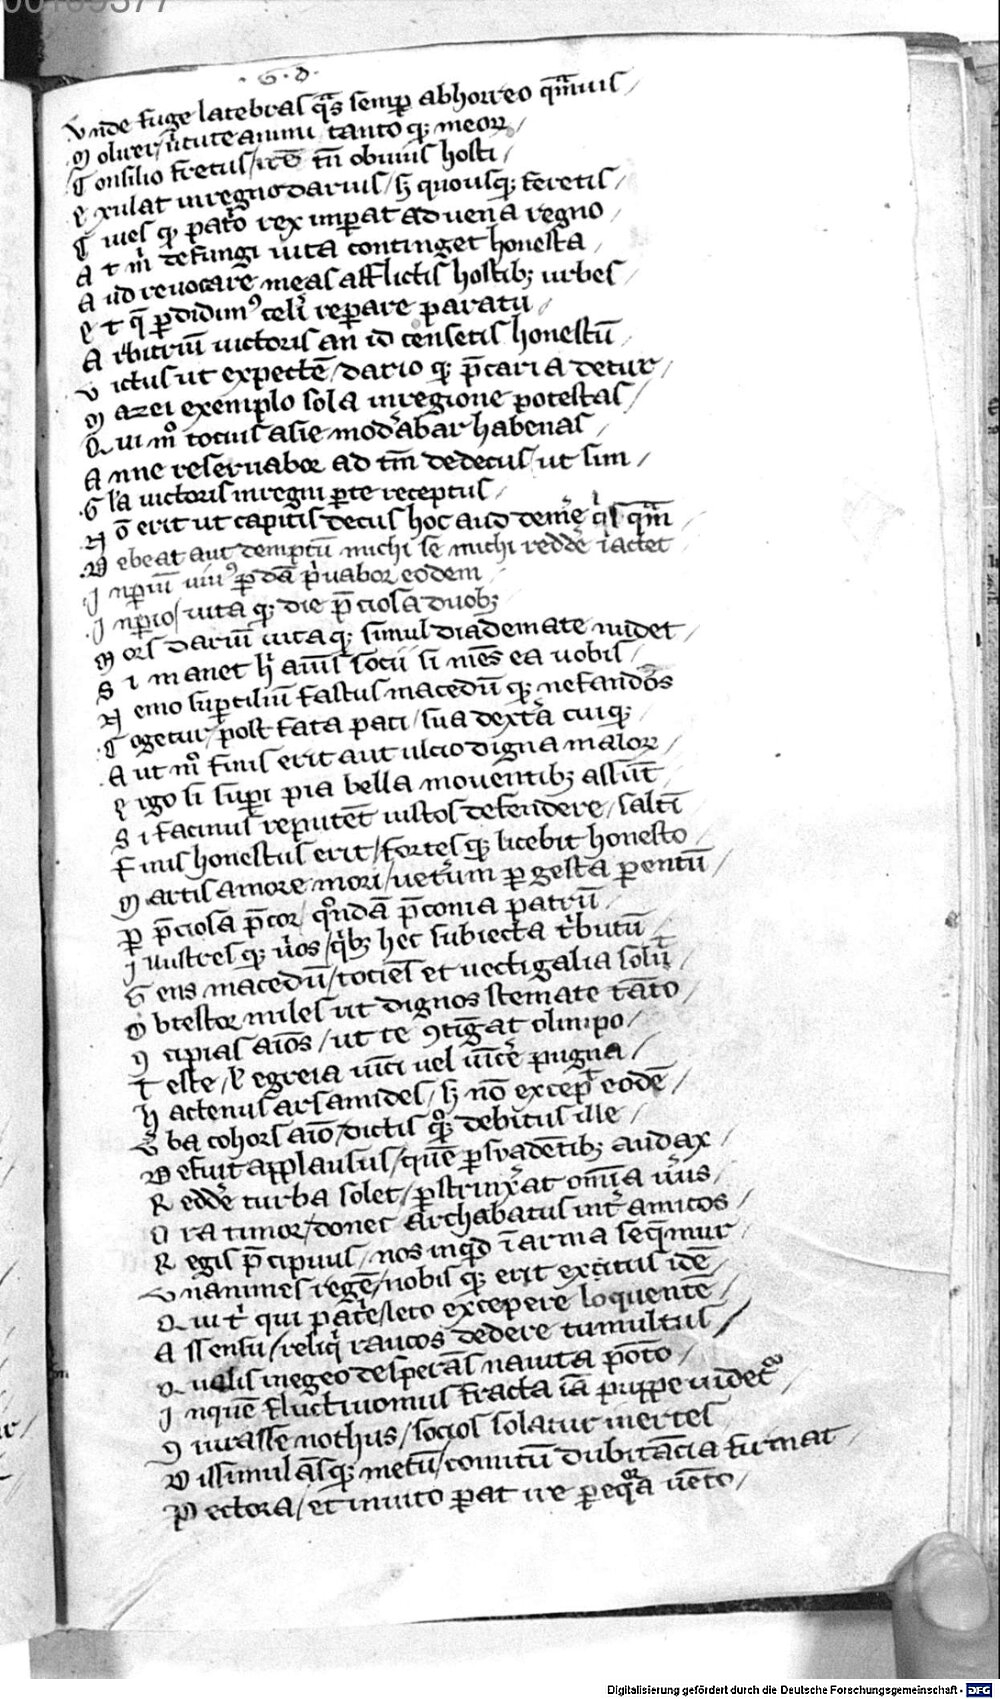 ·G·D·
Vnde fuge latebras qͣs semꝑ abhorreo qͣmuis /
Moliver / uͥtute animi / tanto qꝫ meoꝝ /
Consilio fretus / tn̄ obuius hosti /
Exulat in regno darius / ſꝫ quousqꝫ feretis /
Ciues qꝫ rex imꝑat aduena regno /
At m̄ defungi uita continget honesta /
Aud reuocare meas afflictis hostibꝫ urbes /
Et q̄ ꝑdidimꝰ celīͥ reparare paratu /
Arbitriū uictoris an id censetis honestū /
Victus ut expectē / dario qꝫ p̄caria detur /
Mazei exemplo sola in regione potestas /
Qui mͦ tocius asie modͣabar habenas /
Anne reseruabor ad tm̄ dedecus / ut sim /
Gͥla uictoris in regni ꝑte receptus /
Nō erit ut capitis decus hoc aud demͤe qͥs qͣm
Debeat aut demptū michi se michi reddͤe iactet
Inꝑiū uiuꝰ ꝑdā pͥuabor eodem
Inꝑio / uita qꝫ die p̄ciosa duobꝫ
Mors dariū uita qꝫ simul diademate nudet /
Si manet hͥ aīs socii si mēs ea uobis /
Nemo suꝑciliū fastus macedū qꝫ nefandos
Cogetur / post fata pati / sua dextͣa cuiqꝫ
Aut mͦ finis erit aut ulcio digna maloꝝ /
Ergo si suꝑi pia bella mouentibꝫ assūt /
Si facinus reputēt iustos defendere / saltī
Finis honestus erit / fortes qꝫ licebit honesto
Martis amore mori / uetͤum ꝑ gesta ꝑentū /
Ꝑ p̄ciosa p̄cor / qͦndā p̄conia patrū
Illustres qꝫ uͥos / qͥbꝫ hec subiecta tͥbutū
Gens macedū / tociēs et uectigalia soluͥt /
Obtestor miles ut dignos stemate tāto /
Ꝯcipias aīos / ut te ꝯtīgat olimpo /
Teste / uͥ egregia uīci uel uīcͤe pugna /
Hactenus arsamides / ſꝫ nō excepͥt eodē /
Vͤba cohors aīo / dictis qͦꝫ debitus ille /
Defuit applausus / quē ꝑsuadētibꝫ audax /
Reddͤe turba solet / ꝑstrinxͤat omīa uͤus /
Ora timor / donec archabatus intͤ amicos /
Regis p̄cipuus / nos inqͥd ī arma seq̄mur
Vnanimes regē / nobis qꝫ erit exitus idē /
Quit̄ͥ qui patͤe / leto excepere loquentē /
Assensu / reliqͥ raucos dedere tumultus /
Qualis in egeo desperās nauita ponto /
Inquē fluctiuomus fracta iā puppe uidet
Ꝯiurasse nothus / socios solatur inertes
Dissimulās qꝫ metū / comitū dubitācia firmat
Pectora / et inuito parat ire ꝑ eqͦͬa uēto /